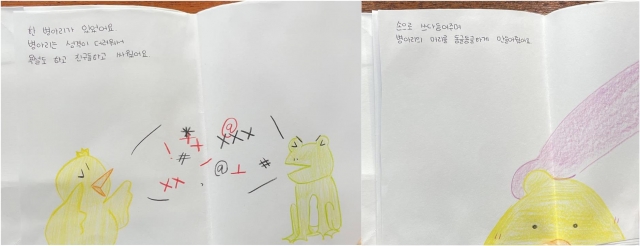 한 병아리가 있었어요
병아리는 성격이 더러워서
욕설도 하고 친구들하고 싸웠어요.
* @
! x x x x x
# @ ⊥ #
x x
손으로 쓰다듬어주며
병아리의 머리를 동글동글하게 만들어줬어요